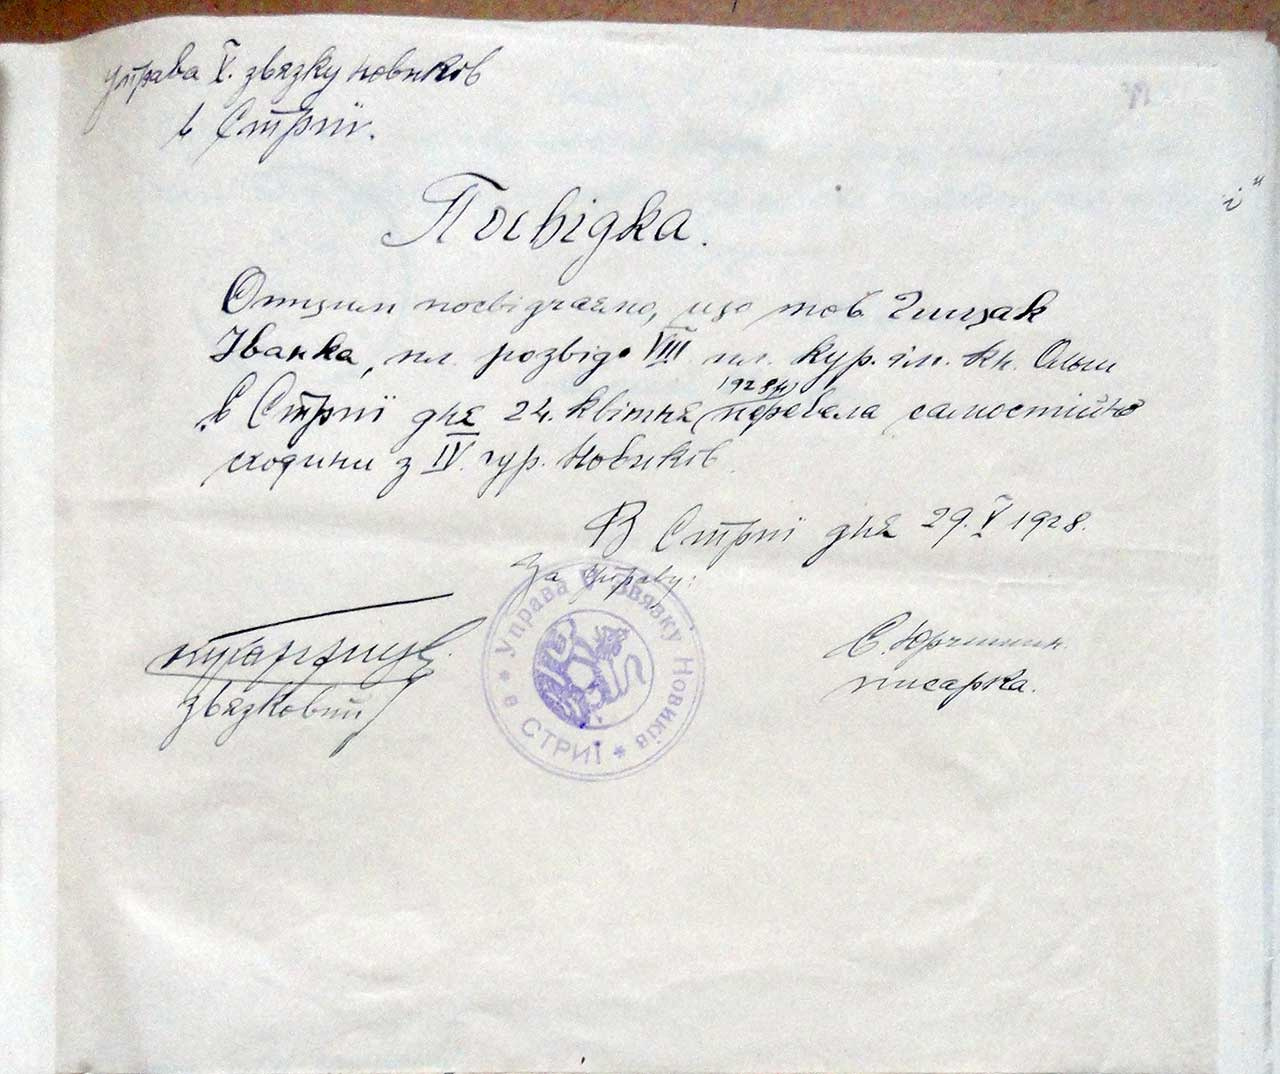 Управа V. звязку новиків
в Стрпії.
Посвідка.
Отцим посвідчаємо, що тов.
Іванка, пл. розвідо VIII пл. кур. ім. кн. Ольги
1928р
в Стрпії дня 24. квітня перевела самостійно
сходини з IV. гур. Новиків.
В Стрпії дня 29. V 1928.
За управу:
звязковий
писарка.
Управа V Звязку Новиків
* в СТРИЇ *